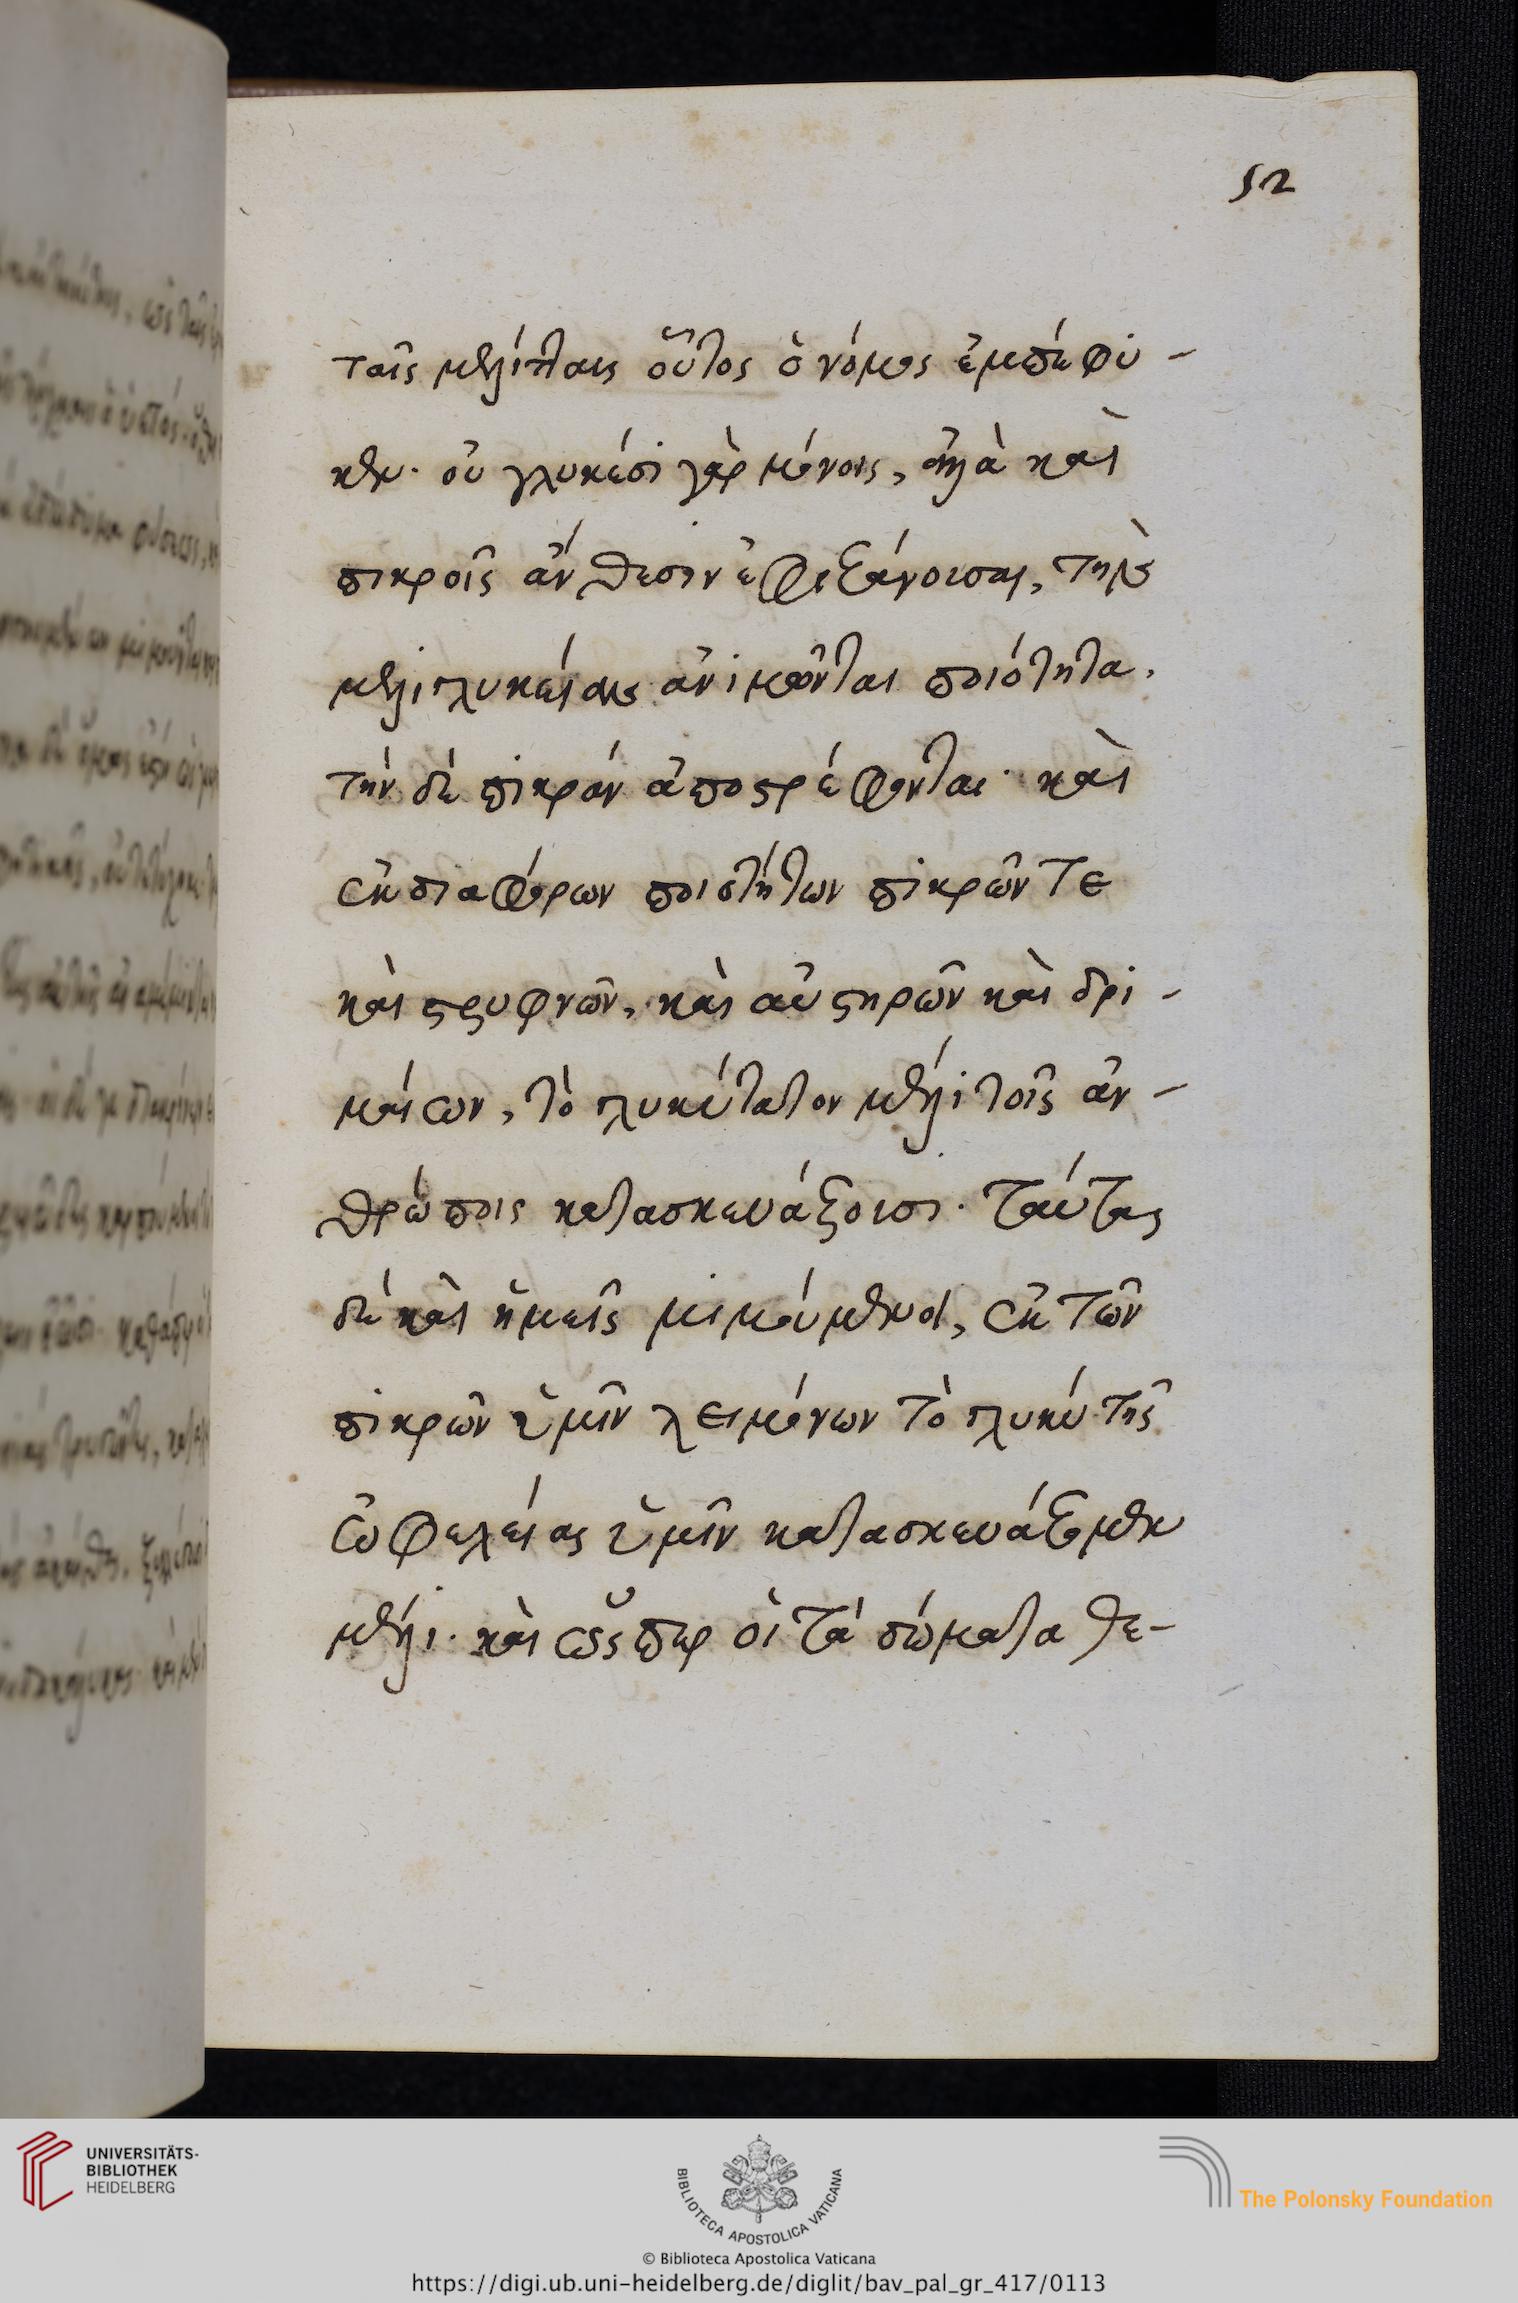 52
ταῖς μελίτταις οὗτος ὁ νόμος ἐμπέφυ-
κεν· οὐ γλυκέσι γὰρ μόνοις, ἀλλὰ καὶ
πικροῖς ἄνθεσιν ἐφιζάνουσαι, τῆς
μὲν γλυκείας ἀνιμῶνται ποιότητα,
τὴν δὲ πικρὰν ἀποστρέφονται· καὶ
ἐκ διαφόρων ποιοτήτων πικρῶν τε
καὶ στρυφνῶν, καὶ αὐστηρῶν καὶ δρι-
μέων, τὸ γλυκύτατον μέλι τοῖς ἀν-
θρώποις κατασκευάζουσι· ταύτας
δὲ καὶ ἡμεῖς μιμούμενοι, ἐκ τῶν
πικρῶν ὑμῖν λειμώνων τὸ γλυκὺ τῆς
ὠφελείας ὑμῖν κατασκευάζομεν
μέλι· καὶ ὥσπερ οἱ τὰ σώματα θε-
UNIVERSITÄTS-
BIBLIOTHEK
HEIDELBERG
BIBLIOTECA APOSTOLICA VATICANA
The Polonsky Foundation
© Biblioteca Apostolica Vaticana
https://digi.ub.uni-heidelberg.de/diglit/bav_pal_gr_417/0113